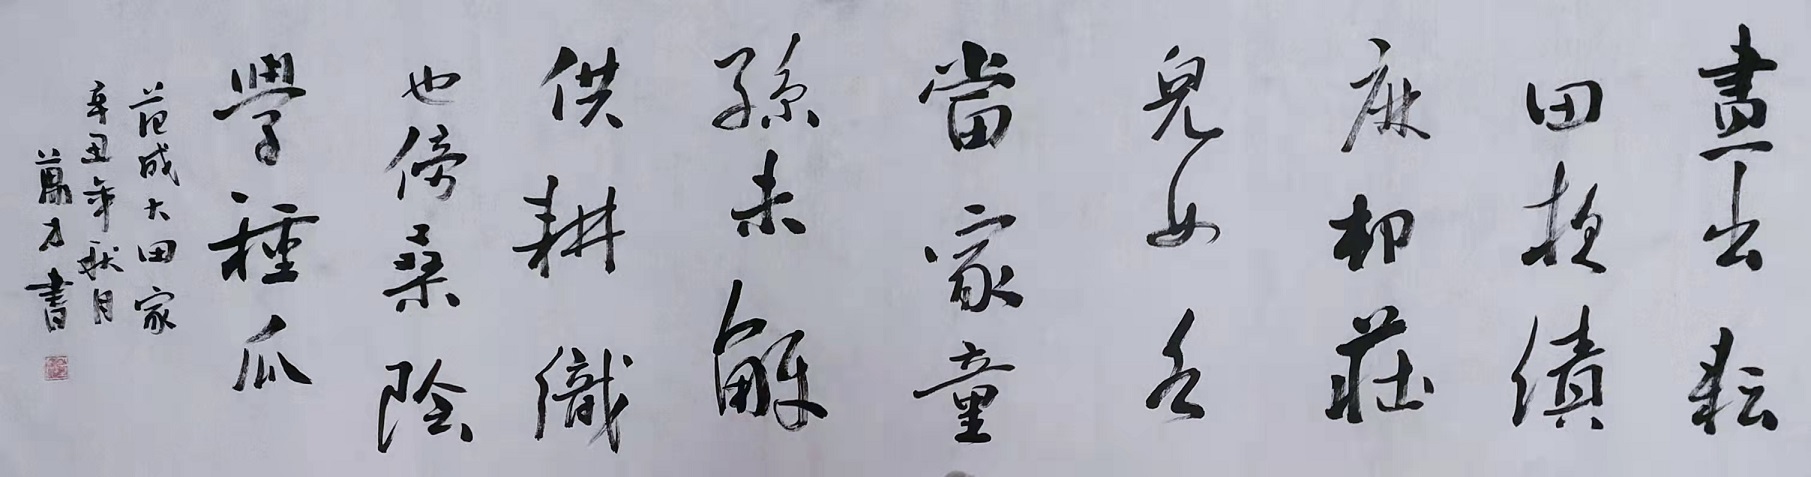 晝出耘
田夜績
麻村莊
兒女各
當家童
孫未解
供耕織
也傍桑陰
學種瓜
范成大田家
辛丑年秋月
萬才書